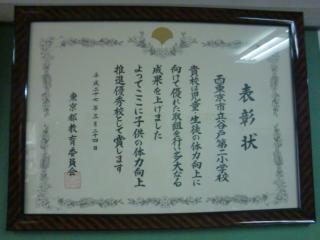 表彰状
西東京市立谷戸第二小学校
貴校は児童・生徒の体力向上に
向けて優れた取組を行い多大なる
成果を上げました
よってここに子供の体力向上
推進優秀校として賞します
平成二十七年三月二十四日
東京都教育委員会